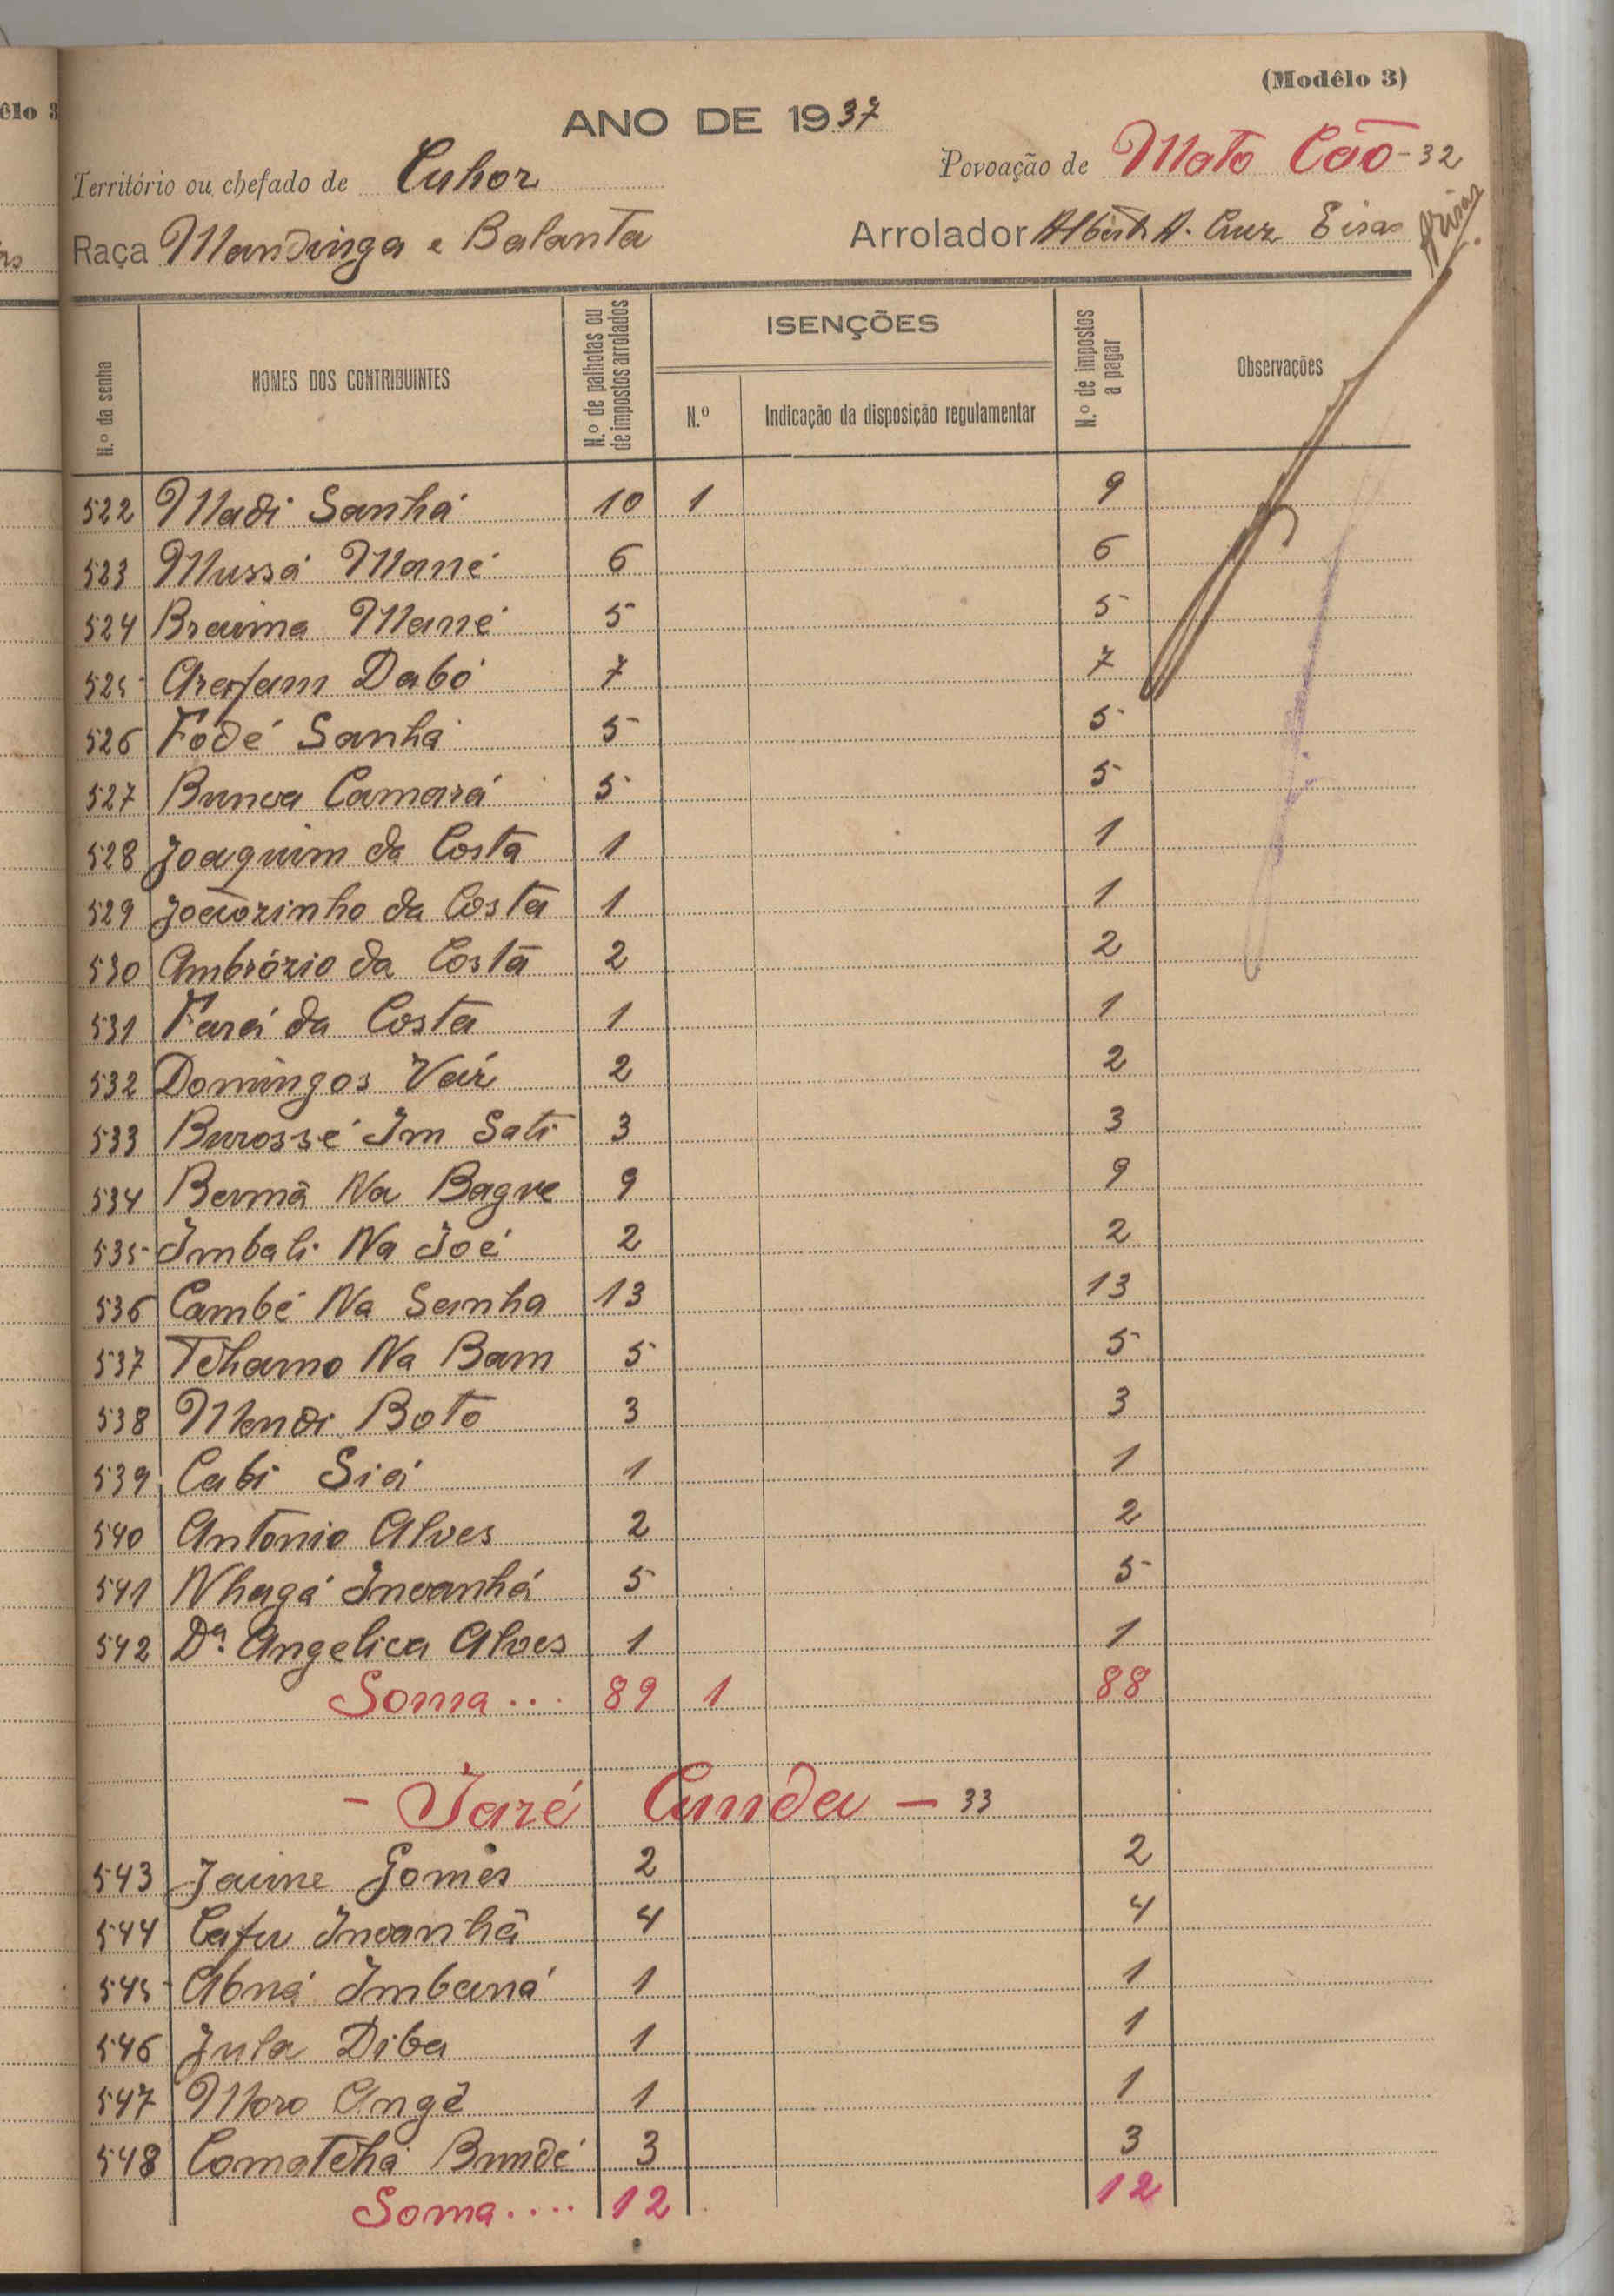 (Modêlo 3)
ANO DE 1937
Território ou chefado de Cuhor Povoação de Mato Cão - 32
Raça Mandinga e Balanta Arrolador A. Cruz Eiras
N.º da senha NOMES DOS CONTRIBUINTES N.º de palhotas ou de impostos arrolados ISENÇÕES N.º Indicação da disposição regulamentar N.º de impostos a pagar Observações
522 Madi Sanhá 10 1 9
523 Mussá Mané 6 6
524 Braima Mané 5 5
525 Arefam Dabó 7 7
526 Fodé Sanhá 5 5
527 Bunca Camará 5 5
528 Joaquim da Costa 1 1
529 Joãozinho da Costa 1 1
530 Ambrózio da Costa 2 2
531 Fará da Costa 1 1
532 Domingos Vaz 2 2
533 Burossé Im Sati 3 3
534 Bermã Na Bagne 9 9
535 Imbali Na Joé 2 2
536 Cambé Na Sanha 13 13
537 Tchamo Na Bam 5 5
538 Mendi Boto 3 3
539 Cabi Siá 1 1
540 Antonio Alves 2 2
541 Nhagá Incanhá 5 5
542 Dª. Angelica Alves 1 1
Soma... 89 1 88
- Jaré Cunda - 33
543 Jaime Gomes 2 2
544 Cafu Incanhã 4 4
545 Abná Imbaná 1 1
546 Jula Diba 1 1
547 Moro Angê 1 1
548 Comatchá Bundé 3 3
Soma.... 12 12